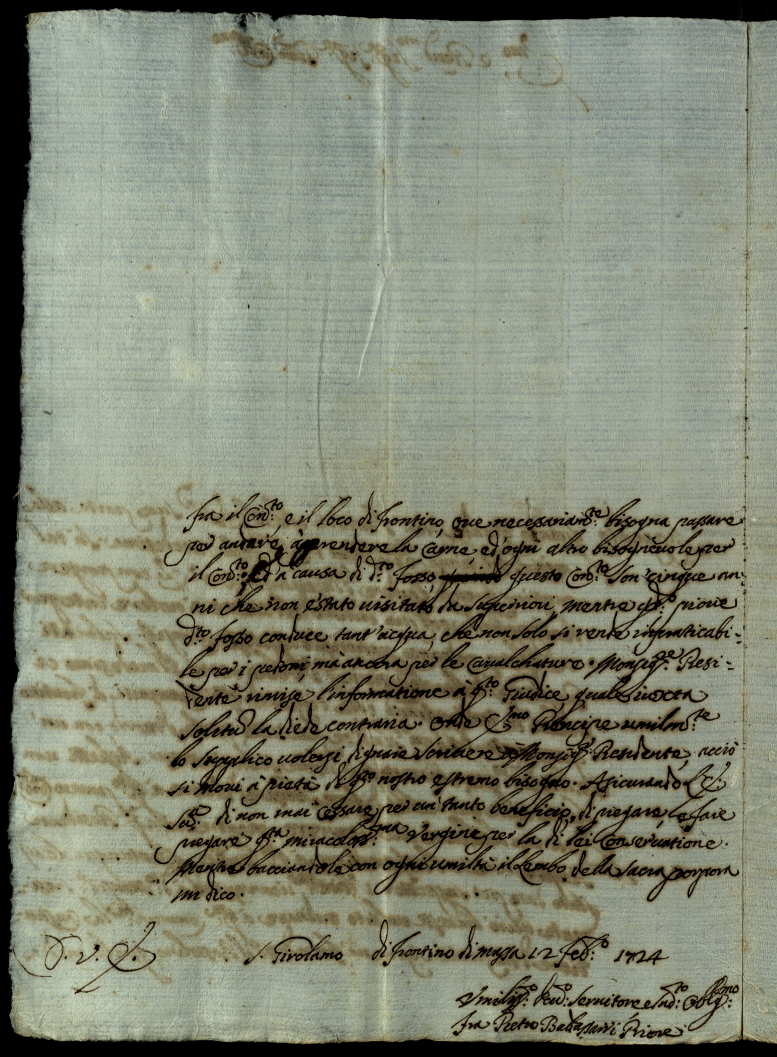 fra il Con.to, e il loco di frontino, que necessariam.te bisogna passare
per andare, à prendere la Carne, ed'ogni altro bisognevole per
il Con.to. Ed'à causa di d.to fosso questo Con.to son cinque an-
ni che non è stato visitato da superiori, mentre qd.o piove
d.to fosso conduce tant'acqua, che non solo si rende impraticabi-
le per i pedoni mà ancora per le cavalchature. Monsig.re Resi-
dente rimise l'informatione à q.to Giudice quale iuxta
solitũ la diede contraria. Onde Principe umilm.te
lo supplico volersi dignare scrivere à Monsig.r Residente, acciò
si movi à pietà di q.to nostro estremo bisogno. Assicurando
di non mai cessare per un tanto beneficio, di pregare, e fare
pregare q.ta miracolos.ma Vergine per la di lei Conservatione.
Mentre bacciandole con ogni umiltà il Lembo della sacra porpora
mi dico.
D. V. E.
S. Girolamo di frontino di massa 12 Feb.o 1724
Umiliss.o Dev.o Servitore e Obblig.mo
fra Pietro Baldassarri Priore